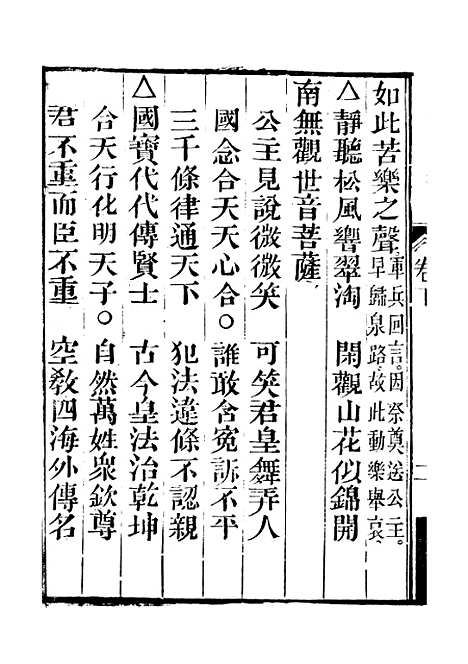 如此苦樂之聲軍兵回言。因祭奠送公主。早歸泉路。故此動樂舉哀
△靜聽松風響翠淘　閑觀山花似錦開
南無觀世音菩薩
公主見說微微笑　可笑君皇舞弄人
國念合天天心合○誰敢含寃訴不平
三千條律通天下　犯法違條不認親
△國寶代代傳賢士　古今皇法治乾坤
合天行化明天子○自然萬姓衆欽尊
君不重而臣不重　空敎四海外傳名
卷下